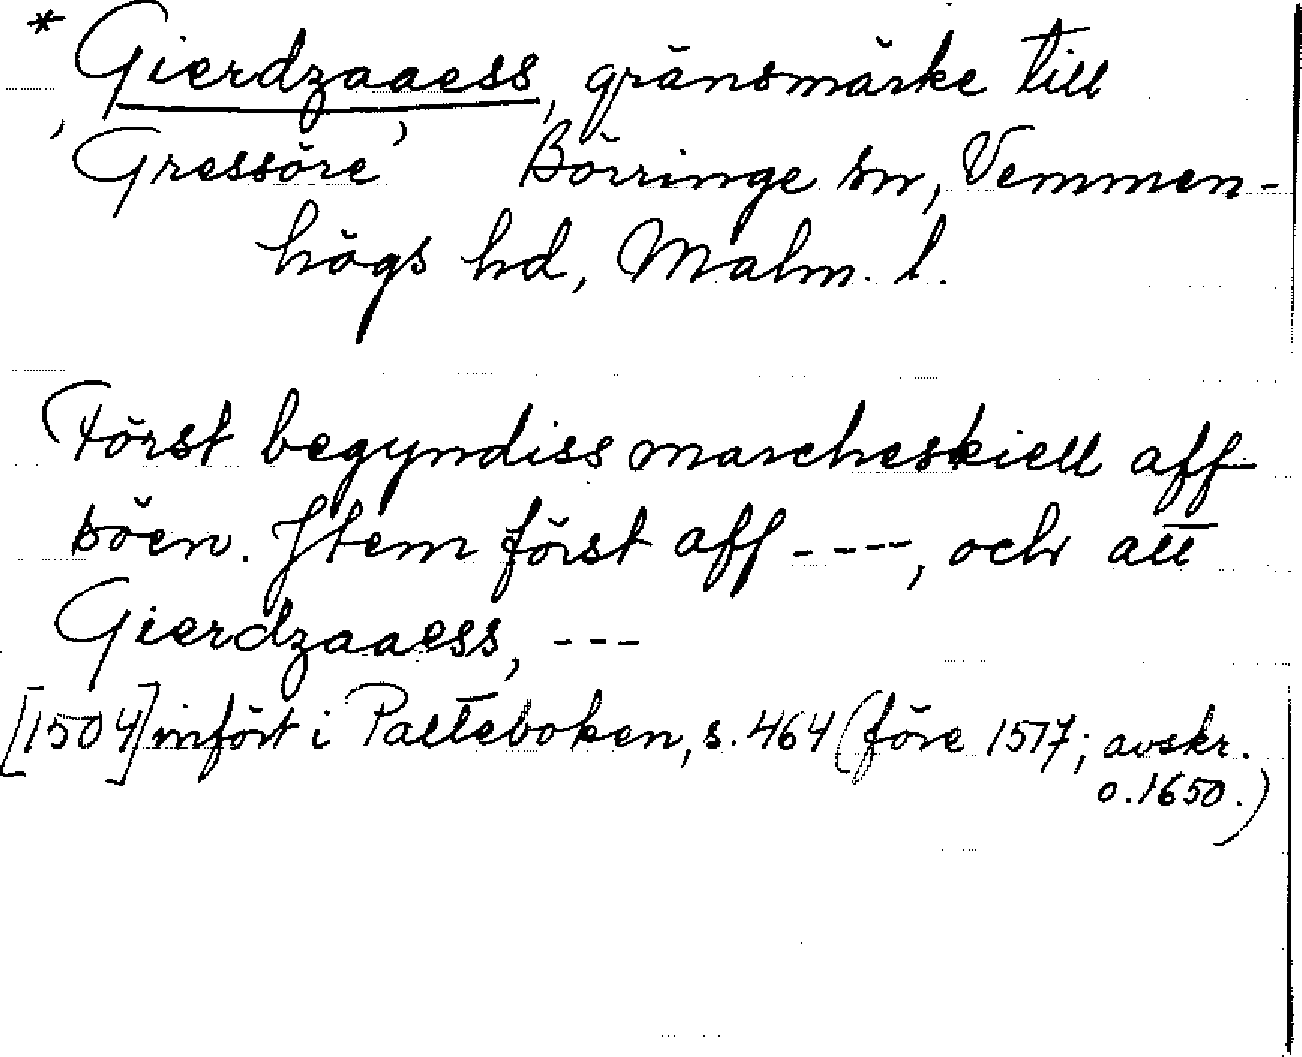 * Gierdzaaess, gränsmärke till
'Gressöre' Börringe sn, Vemmen-
högs hd, Malm. l.
Först begyndiss marcheskiell aff
söen. Jtem först aff ----, och att
Gierdzaaess, ---
[1504] infört i Palteboken, s. 464 (före 1517; avskr.
o. 1650.)